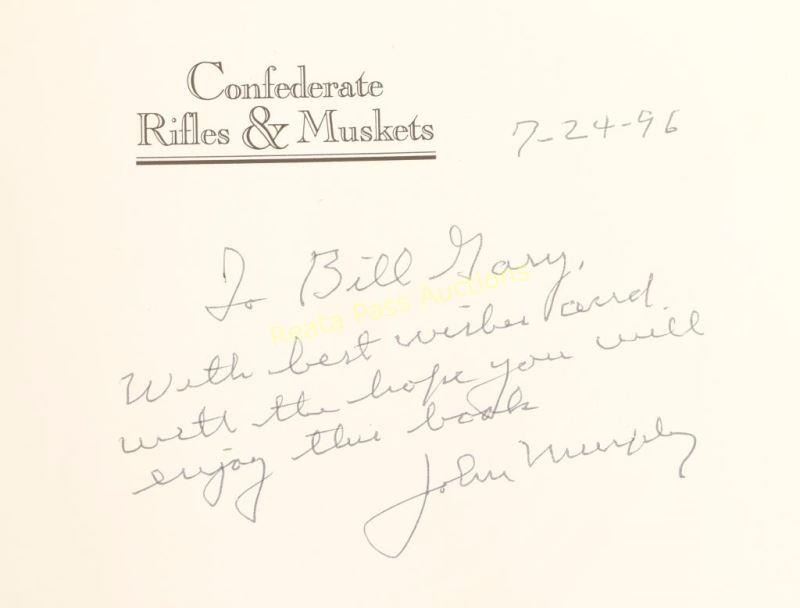 Confederate
Rifles & Muskets
7-24-96
To Bill Gary,
Reata Pass Auctions
With best wishes and
with the hope you will
enjoy this book
John Murphy